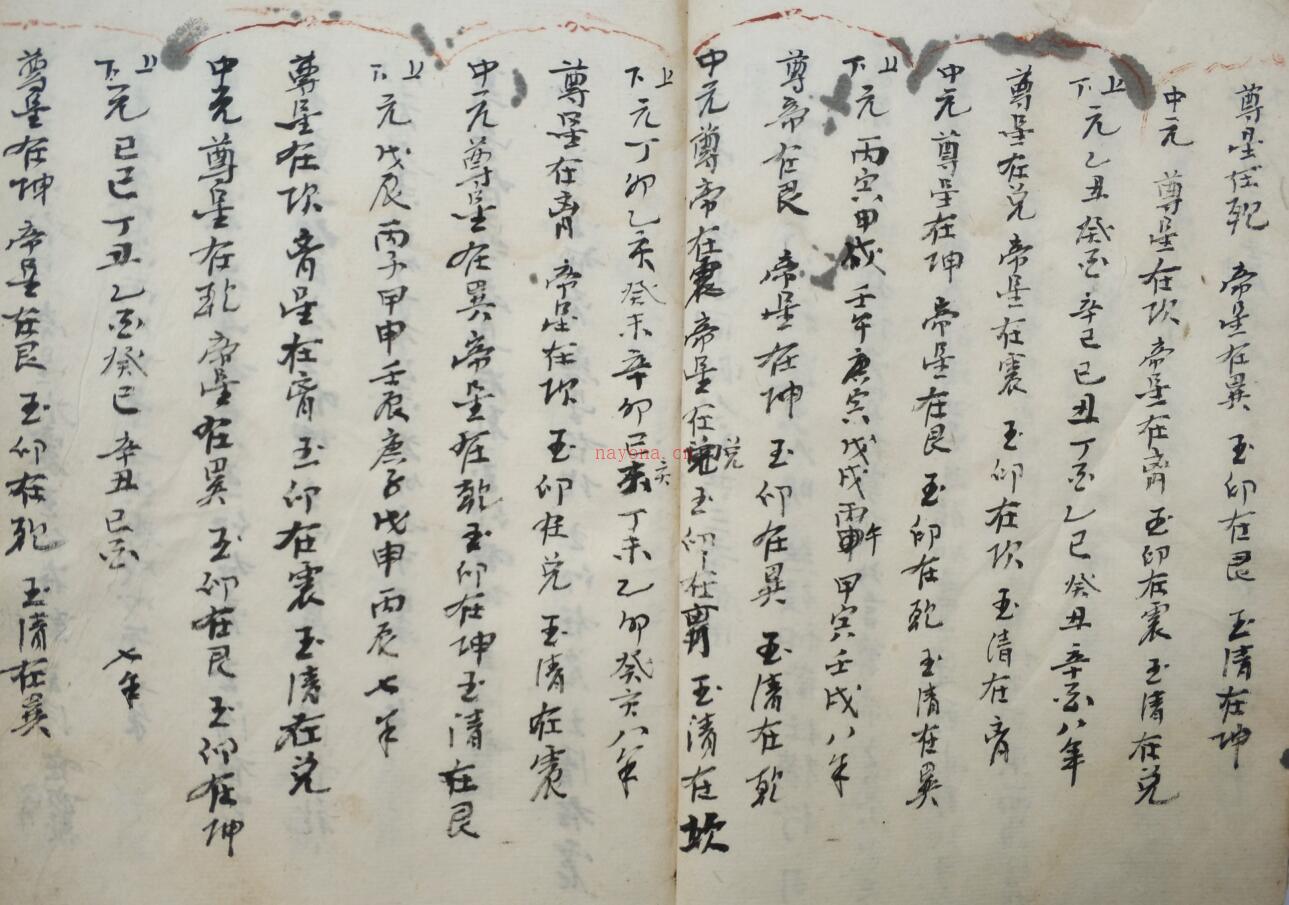 尊星在乾 帝星在巽 玉印在艮 玉清在坤
中元 尊星在坎 帝星在离 玉印在震 玉清在兑
上下元 乙丑 癸酉 辛巳 己丑 丁酉 乙巳 癸丑 辛酉 八年
尊星在兑 帝星在震 玉印在坎 玉清在
中元 尊星在坤 帝星在艮 玉印在乾 玉清在巽
上下元 丙寅 甲戌 壬午 庚寅 戊戌 丙午 甲寅 壬戌 八年
尊帝在艮 帝星在坤 玉印在巽 玉清在乾
中元 尊帝在震 帝星在兑 玉印在 玉清在坎
上下元 丁卯 乙亥 癸未 辛卯 己亥 丁未 乙卯 癸亥 八年
尊星在 帝星在坎 玉印在兑 玉清在震
中元 尊星在巽 帝星在乾 玉印在坤 玉清在艮
上下元 戊辰 丙子 甲申 壬辰 庚子 戊申 丙辰 七年
尊星在坎 星在 玉印在震 玉清在兑
中元 尊星在乾 帝星在巽 玉印在艮 玉印在坤
上下元 己巳 丁丑 乙酉 癸巳 辛丑 己酉 七年
尊星在坤 帝星在艮 玉印在乾 玉清在巽
nayona.cn